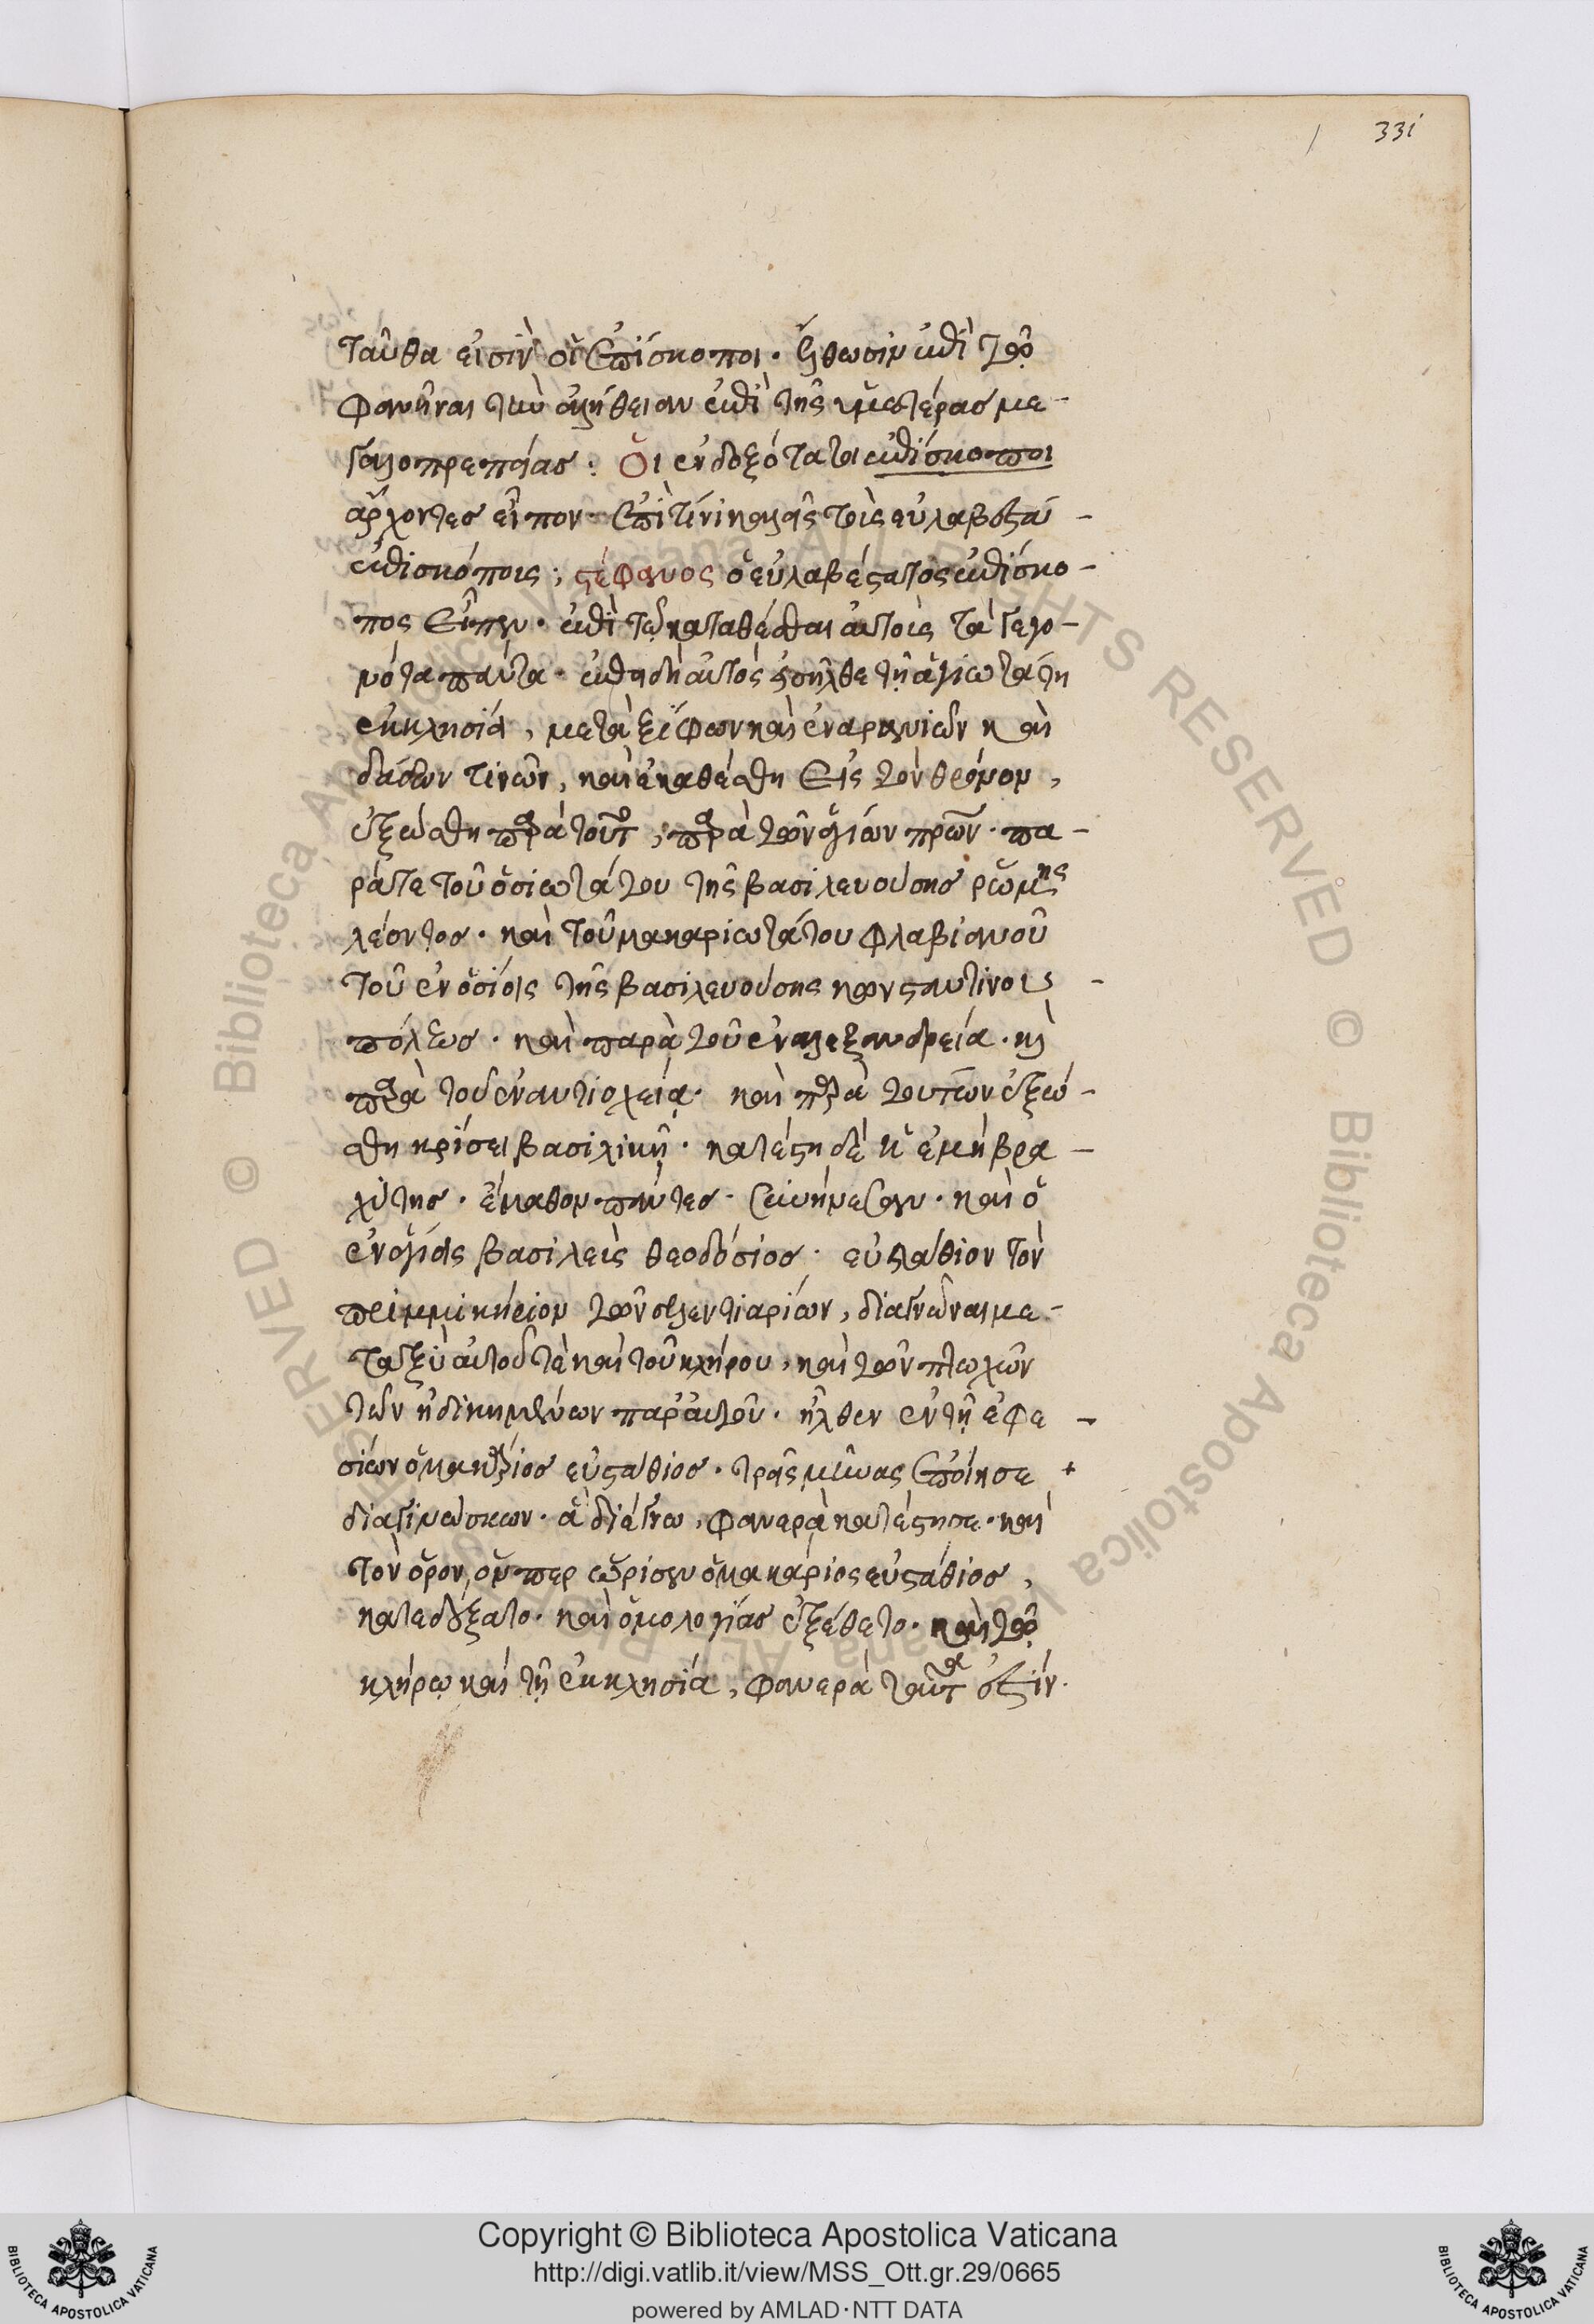 331
ταῦθα εἰσὶν οἱ ἐπίσκοποι· ἔλθωσιν ἐπὶ τῷ
φανῆναι τὴν ἀλήθειαν ἐπὶ τῆς ὑμετέρας με-
γαλοπρεπείας: Οἱ ἐνδοξότατοι ἐπίσκοποι
ἄρχοντες εἶπον· ἐπὶ τίνι καλεῖς τοῖς εὐλαβεστά-
ἐπισκόποις; στέφανος ὁ εὐλαβέστατος ἐπίσκο-
πος εἶπεν· ἐπὶ τῷ καταθέσθαι αὐτοῖς τὰ γεγο-
νότα πάντα· ἐπειδὴ αὐτὸς ἐσῆλθε τῇ ἁγιωτάτη
ἐκκλησίᾳ, μετὰ ξίφων καὶ ἐναρκανιῶν καὶ
δάδων τινῶν, καὶ ἐκαθέσθη εἰς τὸν θρόνον,
ἐξεώσθη παρὰ τοῦτο, παρὰ τῶν ἁγίων πρων· πα-
ρά τε τοῦ ὁσιωτάτου τῆς βασιλευούσης ῥώμης
λέοντος· καὶ τοῦ μακαριωτάτου φλαβιανοῦ
τοῦ ἐν ὁσίοις τῆς βασιλευούσης κωνσταντίνου -
πόλεως· καὶ παρὰ τοῦ ἐν ἀλεξανδρείᾳ· καὶ
παρὰ τοῦ ἐν ἀντιοχείᾳ· καὶ παρὰ τούτων ἐξεώ-
σθη κρίσει βασιλικῇ· κατέστη δὲ καὶ ἐμὴ βρα-
χύτης· ἔμαθον πάντες· συνήνεσαν· καὶ ὁ
ἐν ἁγίοις βασιλεὺς θεοδόσιος· εὐστάθιον τὸν
πριμμικήριον τῶν σιλεντιαρίων, διαγνῶναι με-
ταξὺ αὐτοῦ τὲ καὶ τοῦ κλήρου, καὶ τῶν πτωχῶν
τῶν ἠδικημένων παρ' αὐτοῦ· ἦλθεν ἐν τῇ ἐφε-
σίων ὁ μακάριος εὐστάθιος· τρεῖς μῆνας ἐποίησε +
διαγινώσκων· ἃ διέγνω, φανερὰ κατέστησε· καὶ
τὸν ὅρον, οὗπερ ὥρισεν ὁ μακάριος εὐστάθιος,
κατεδέξατο· καὶ ὁμολογίας ἐξέθετο· καὶ τῷ
κλήρῳ καὶ τῇ ἐκκλησίᾳ, φανερὰ ταῦτα ἐστίν·
Copyright © Biblioteca Apostolica Vaticana
http://digi.vatlib.it/view/MSS_Ott.gr.29/0665
powered by AMLAD·NTT DATA